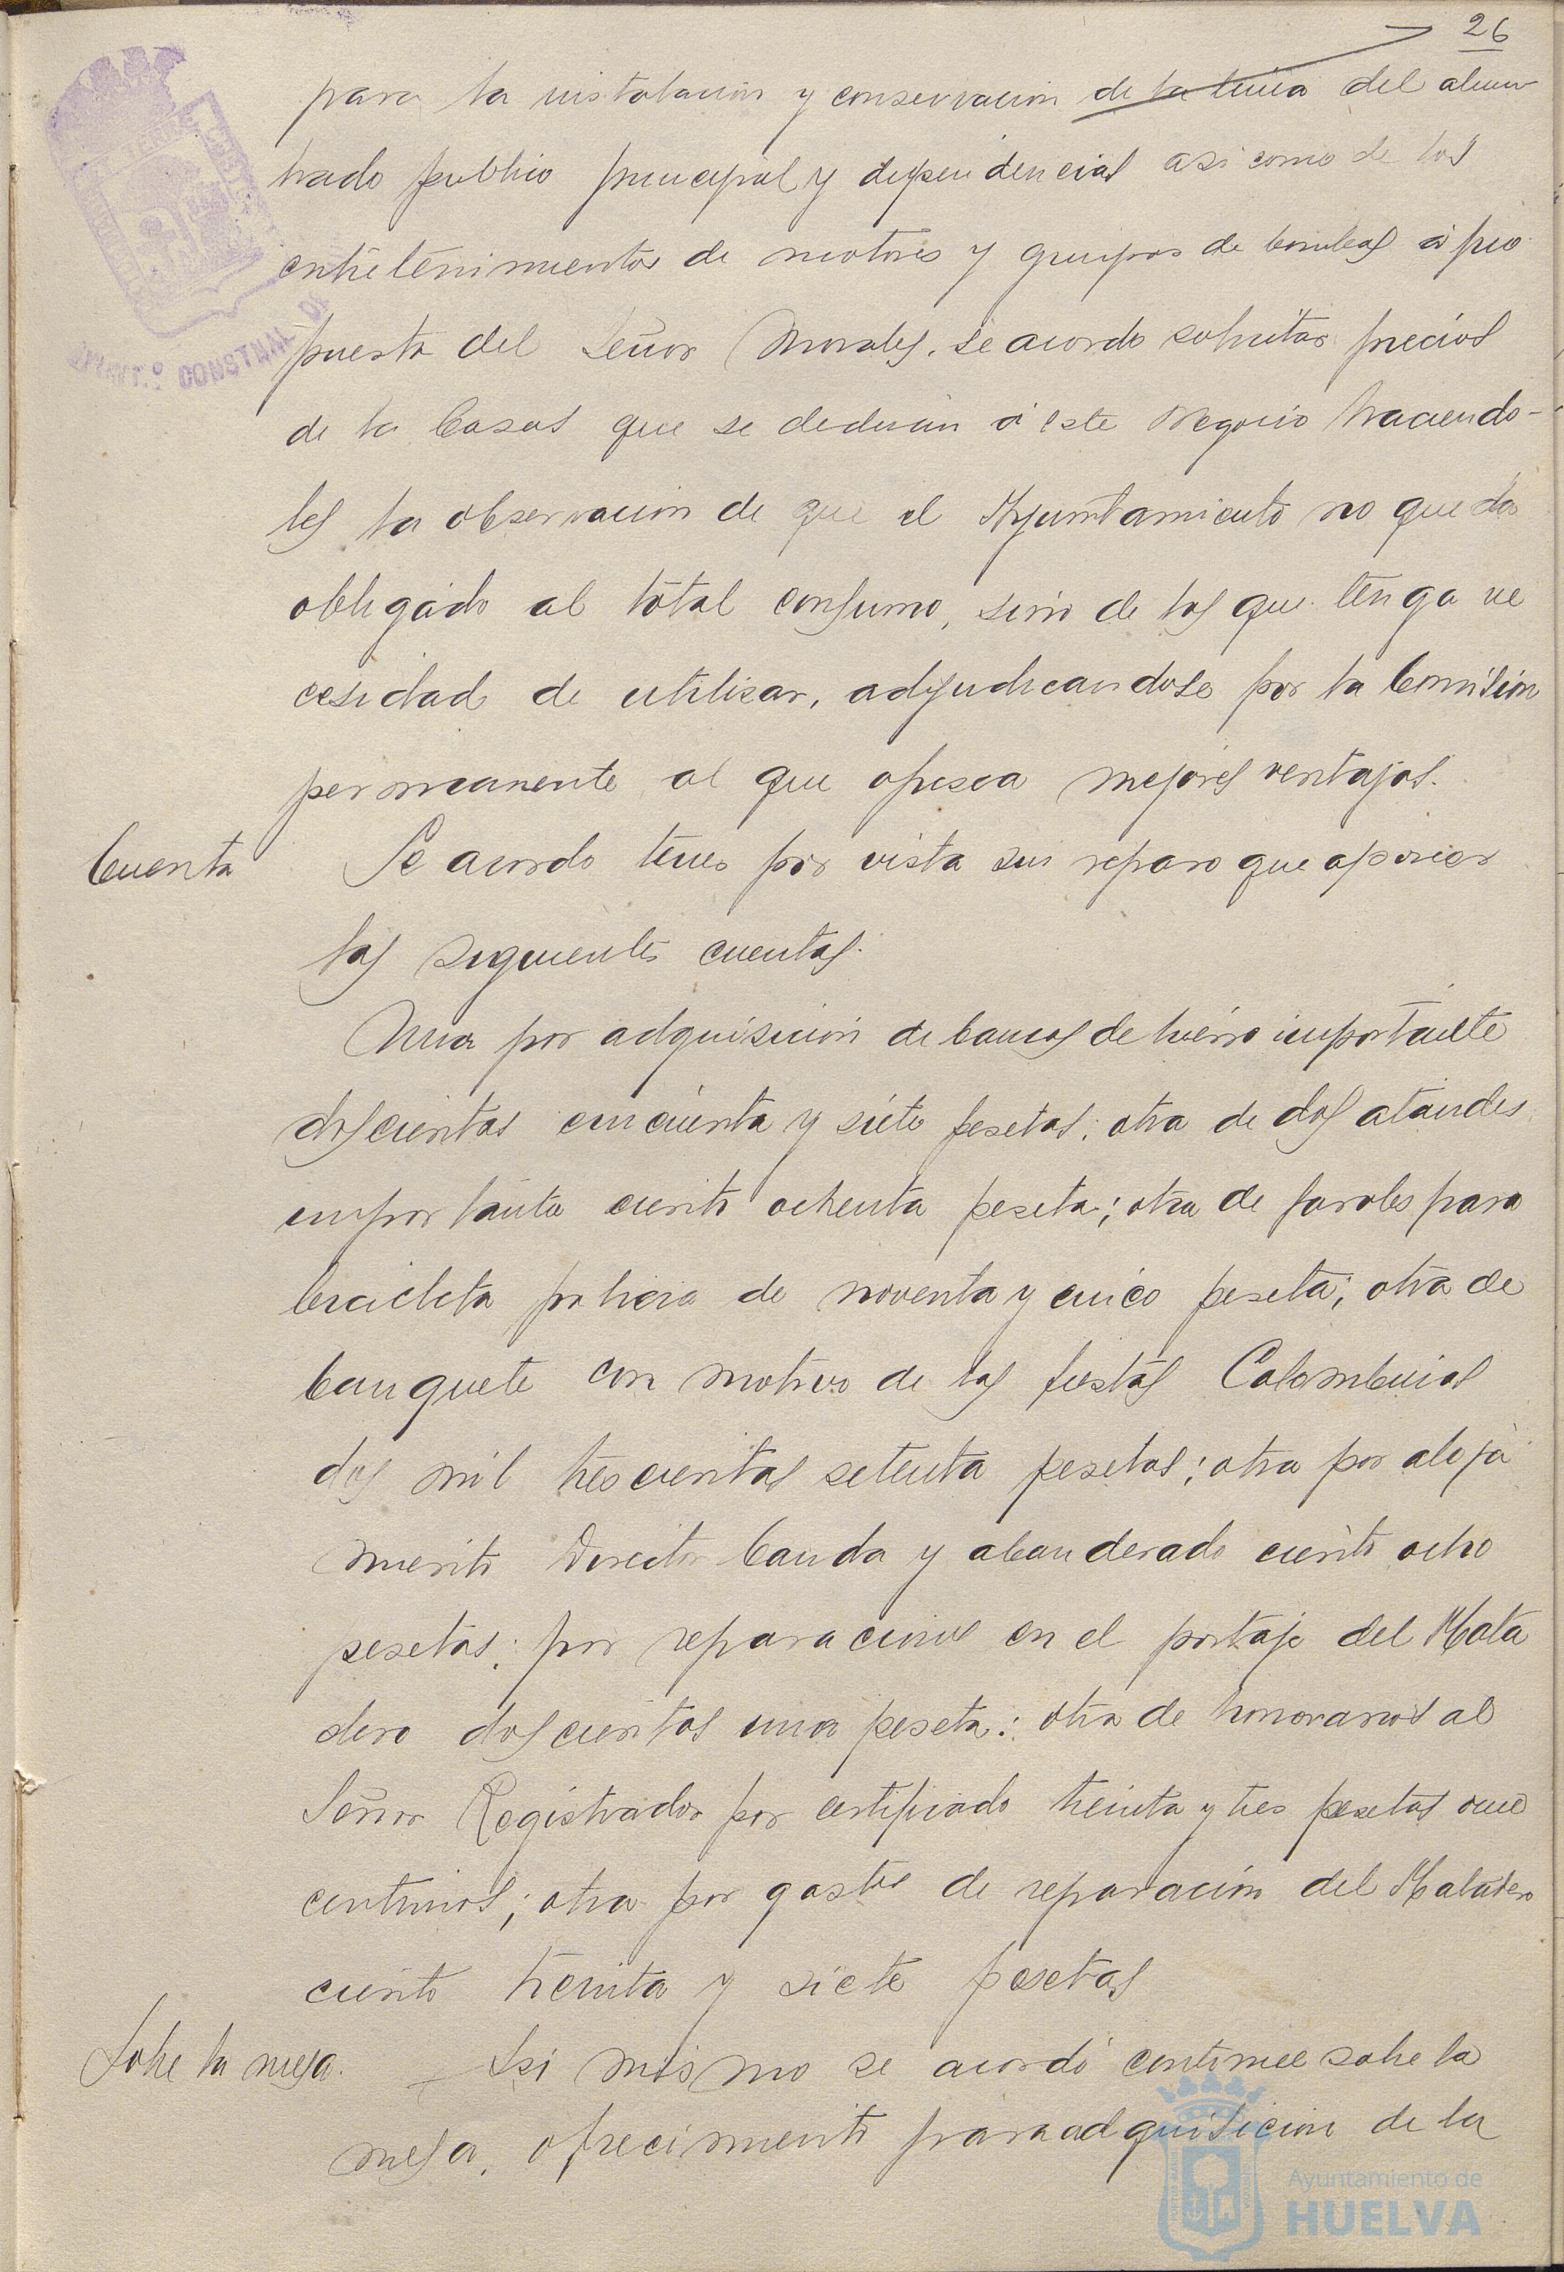 26
para la instalacion y conservacion de la linea del alum
brado publico principal y dependencias asi como de los
entretenimientos de motores y grupos de bombas á pro
puesta del Señor Morales, se acordo solicitar precios
de la Casas que se dedican á este Negocio haciendo-
les la observacion de que el Ayuntamiento no queda
obligado al total consumo, sino de los que tenga ne
cesidad de utilizar, adjudicandose por la Comision
permanente al que ofresca mejores ventajas.
Cuenta
Se acordo tener por vista sin reparo que aponer
las siguientes cuentas.
Una por adquisicion de bancos de hierro importante
doscientas cincuenta y siete pesetas; otra de dos ataudes
importante ciento ochenta peseta; otra de faroles para
bicicleta policia de noventa y cinco peseta; otra de
banquete con motivo de las fiestas Colombinas
dos mil trescientas setenta pesetas; otra por aloja
miento Director banda y abanderado ciento ocho
pesetas; por reparaciones en el portaje del Mata
dero doscientas una peseta; otra de honorarios al
Señor Registrador por certificado treinta y tres pesetas once
centimos; otra por gastos de reparación del Matadero
ciento treinta y siete pesetas
Sobre la mesa.
Asi mismo se acordó continue sobre la
mesa, ofrecimiento para adquisicion de la
AYUNT.º CONSTNAL DE
Ayuntamiento de
HUELVA